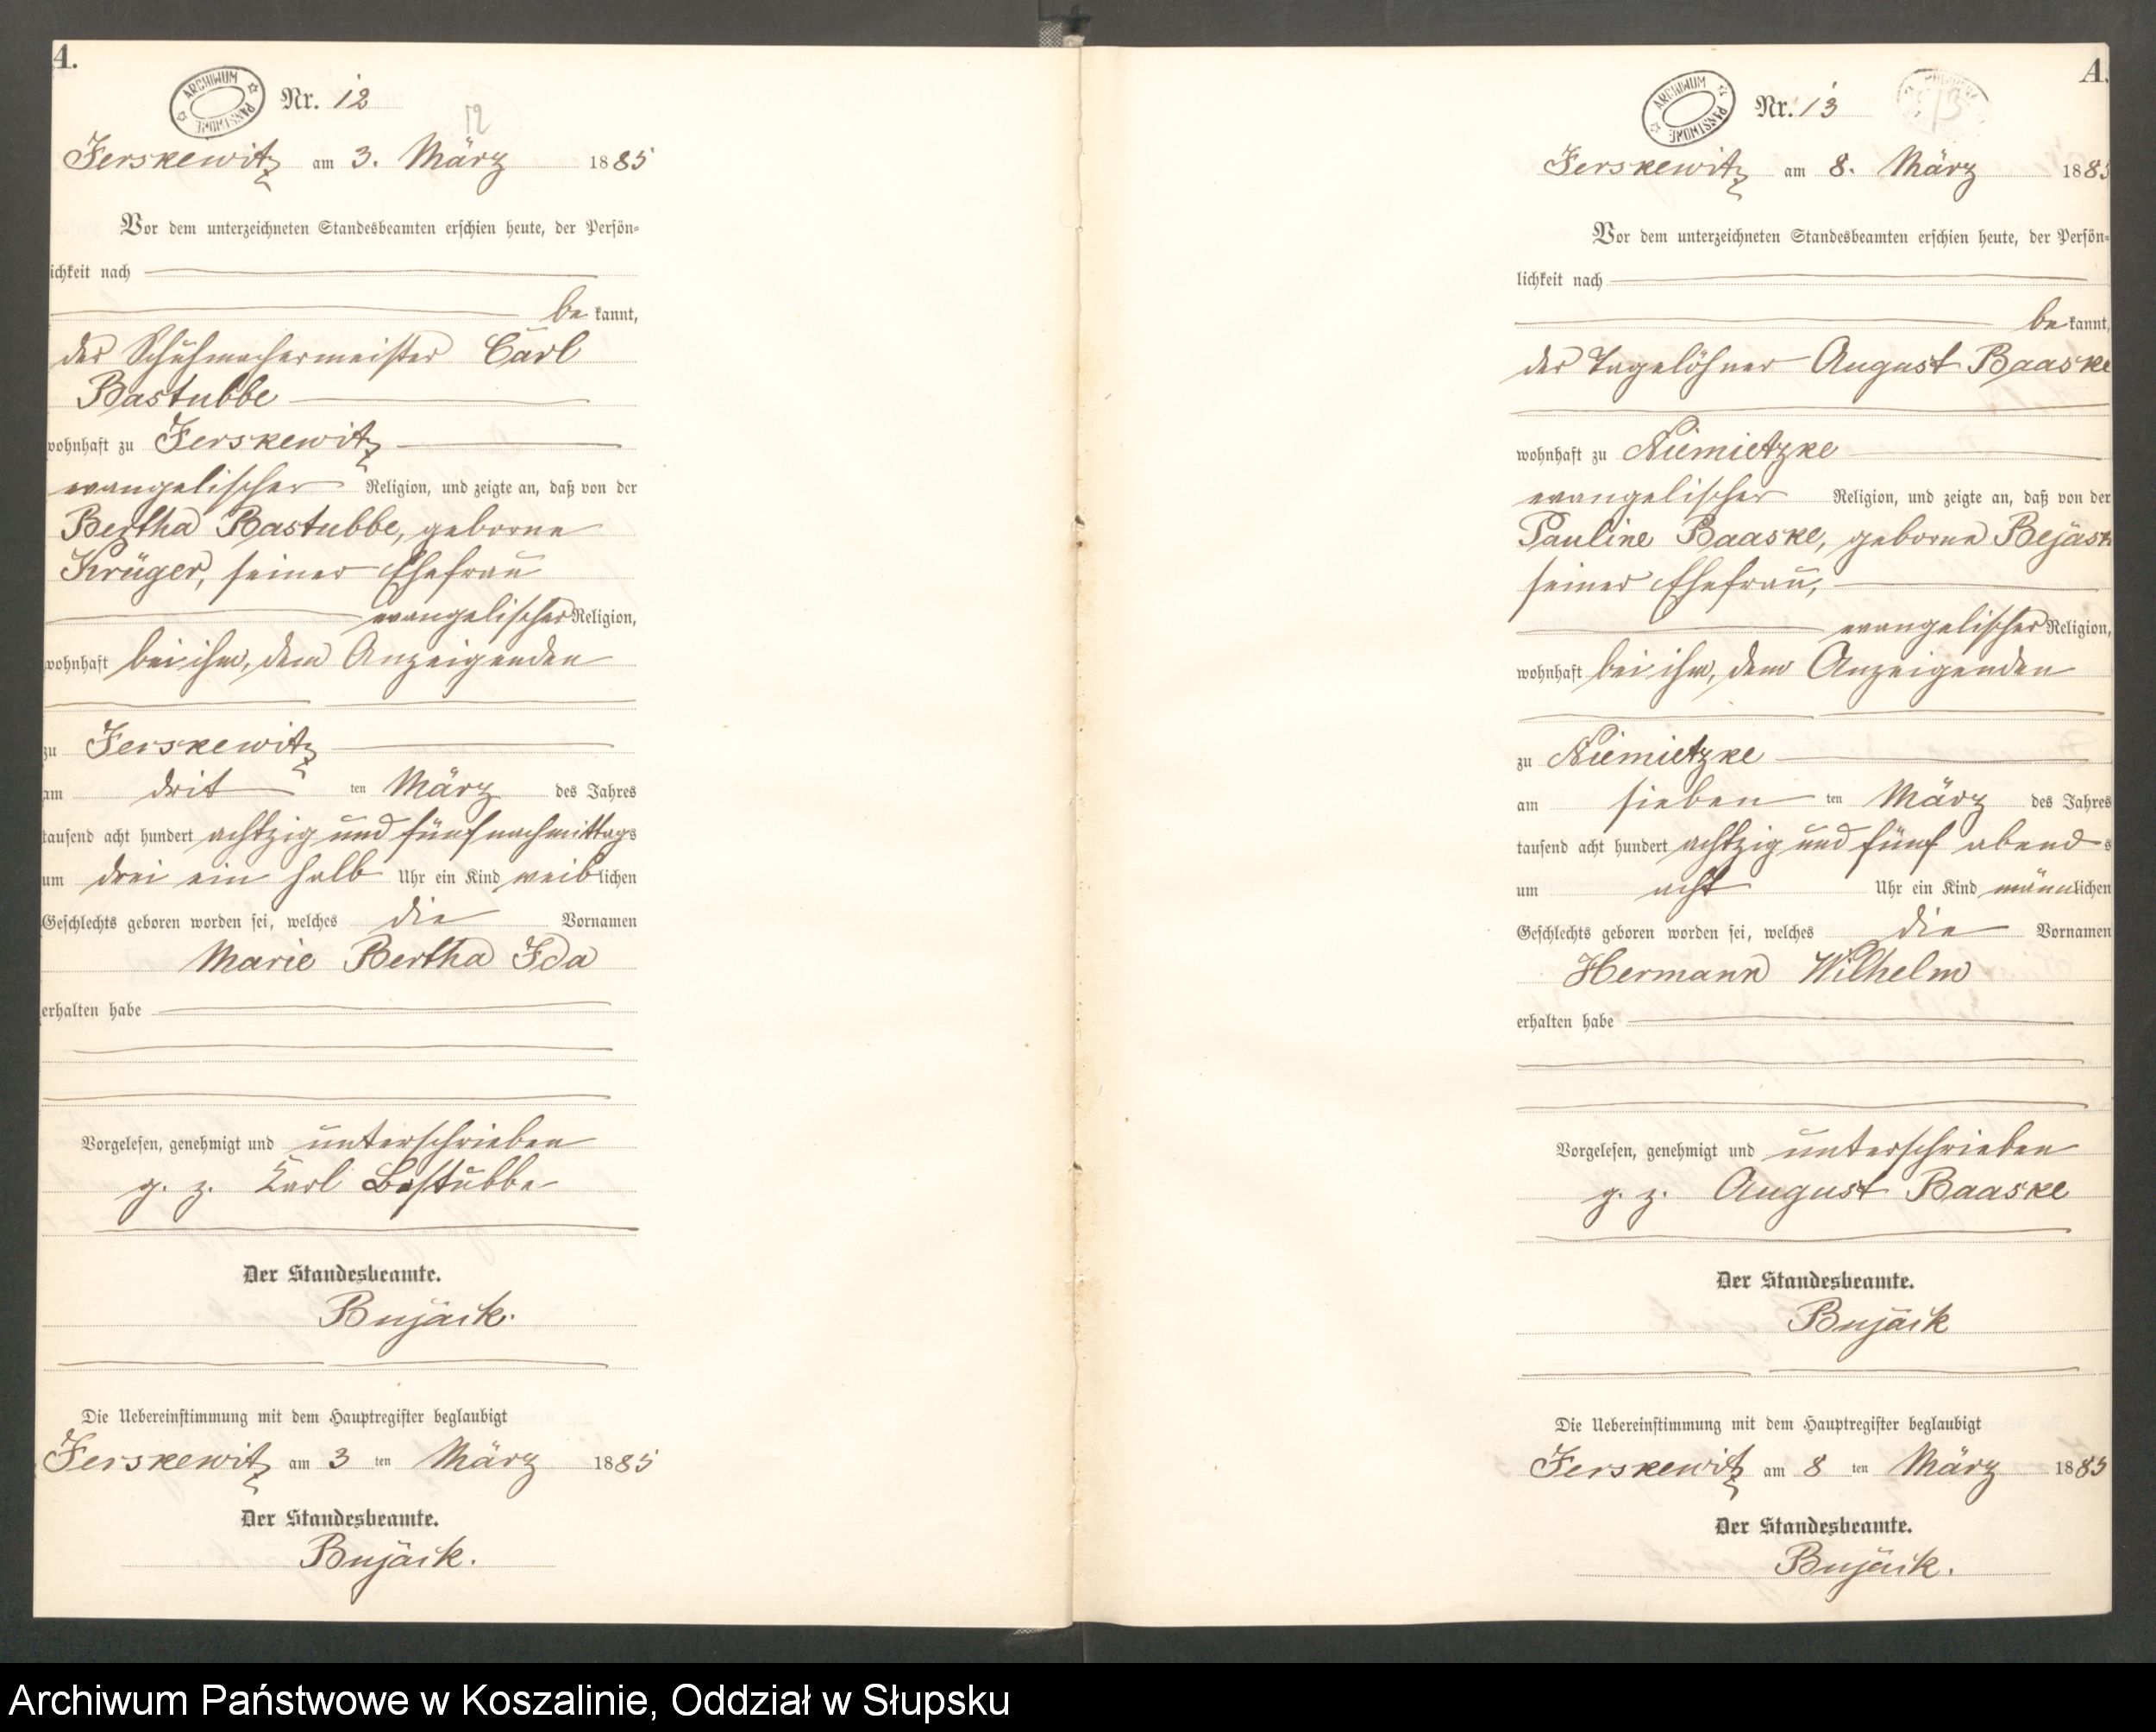 A.
ARCHIWUM PAŃSTWOWE
Nr. 12
12
Jerskewitz am 3. März 1885
Vor dem unterzeichneten Standesbeamten erschien heute, der Persön-
lichkeit nach
be kannt,
der Schuhmachermeister Carl
Bastubbe
wohnhaft zu Jerskewitz
evangelischer Religion, und zeigte an, daß von der
Bertha Bastubbe, geborne
Krüger, seiner Ehefrau
evangelischer Religion,
wohnhaft bei ihm, dem Anzeigenden
zu Jerskewitz
am drit ten März des Jahres
tausend acht hundert achtzig und fünf nachmittags
um drei ein halb Uhr ein Kind weiblichen
Geschlechts geboren worden sei, welches die Vornamen
Marie Bertha Ida
erhalten habe
Vorgelesen, genehmigt und unterschrieben
g. z. Karl Bastubbe
Der Standesbeamte.
Bujack.
Die Uebereinstimmung mit dem Hauptregister beglaubigt
Jerskewitz am 3 ten März 1885
Der Standesbeamte.
Bujack.
A.
ARCHIWUM PAŃSTWOWE
Nr. 13
13
Jerskewitz am 8. März 1885
Vor dem unterzeichneten Standesbeamten erschien heute, der Persön-
lichkeit nach
be kannt,
der Tagelöhner August Baaske
wohnhaft zu Niemietzke
evangelischer Religion, und zeigte an, daß von der
Pauline Baaske, geborne
seiner Ehefrau,
evangelischer Religion,
wohnhaft bei ihm, dem Anzeigenden
zu Niemietzke
am sieben ten März des Jahres
tausend acht hundert achtzig und fünf abends
um acht Uhr ein Kind männlichen
Geschlechts geboren worden sei, welches die Vornamen
Hermann Wilhelm
erhalten habe
Vorgelesen, genehmigt und unterschrieben
g. z. August Baaske
Der Standesbeamte.
Bujack
Die Uebereinstimmung mit dem Hauptregister beglaubigt
Jerskewitz am 8 ten März 1885
Der Standesbeamte.
Bujack.
Archiwum Państwowe w Koszalinie, Oddział w Słupsku